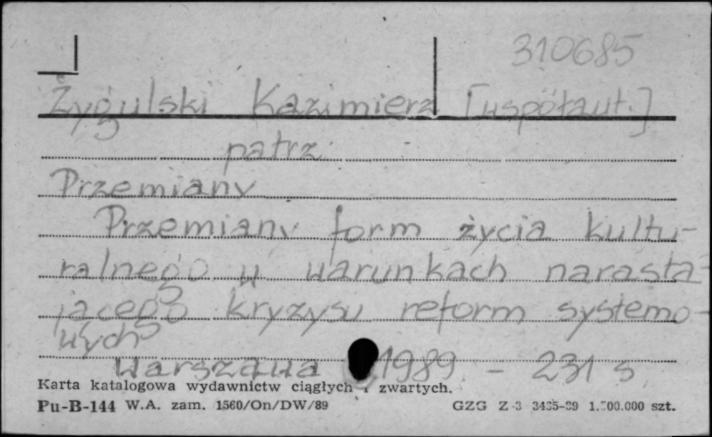 310685
Żygulski Kazimierz [współaut.]
patrz
Przemiany
Przemiany form życia kultu-
ralnego w warunkach narasta-
jącego kryzysu reform systemo-
wych
Warszawa 1989 - 231 s
Karta katalogowa wydawnictw ciągłych i zwartych.
Pu-B-144 W.A. zam. 1560/On/DW/89 GZG Z-3 szt.